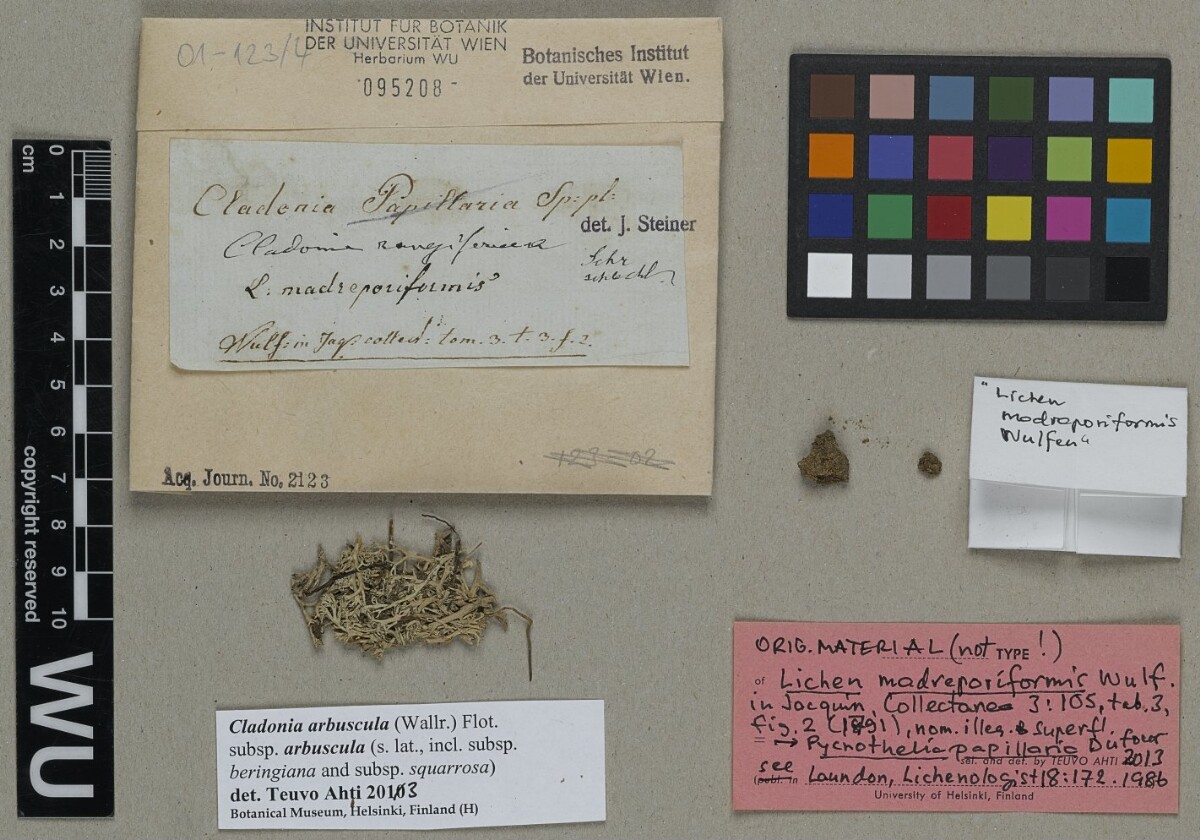 01-123/4
INSTITUT FÜR BOTANIK
DER UNIVERSITÄT WIEN
Herbarium WU
095208 -
Botanisches Institut
der Universität Wien.
Cladonia Papillaria Sp: pl:
det. J. Steiner
Cladonia rangiferina
L: madreporiformis
Wulf: in Jaq: collect: tom. 3. t. 3. f. 2.
Acq. Journ. No. 2123
cm
0
1
2
3
4
5
6
7
8
9
10
copyright reserved
WU
"Lichen
madreporiformis
Wulfen"
Cladonia arbuscula (Wallr.) Flot.
subsp. arbuscula (s. lat., incl. subsp.
beringiana and subsp. squarrosa)
det. Teuvo Ahti 2013
Botanical Museum, Helsinki, Finland (H)
ORIG. MATERIAL (not TYPE!)
of Lichen madreporiformis Wulf.
in Jacquin, Collectanea 3:105, tab. 3,
fig. 2 (1791), nom. illeg. & superfl.
= → Pycnothelia papillaria Dufour
sel. and det. by TEUVO AHTI 2013
see (publ. in Laundon, Lichenologist 18:172. 1986
University of Helsinki, Finland